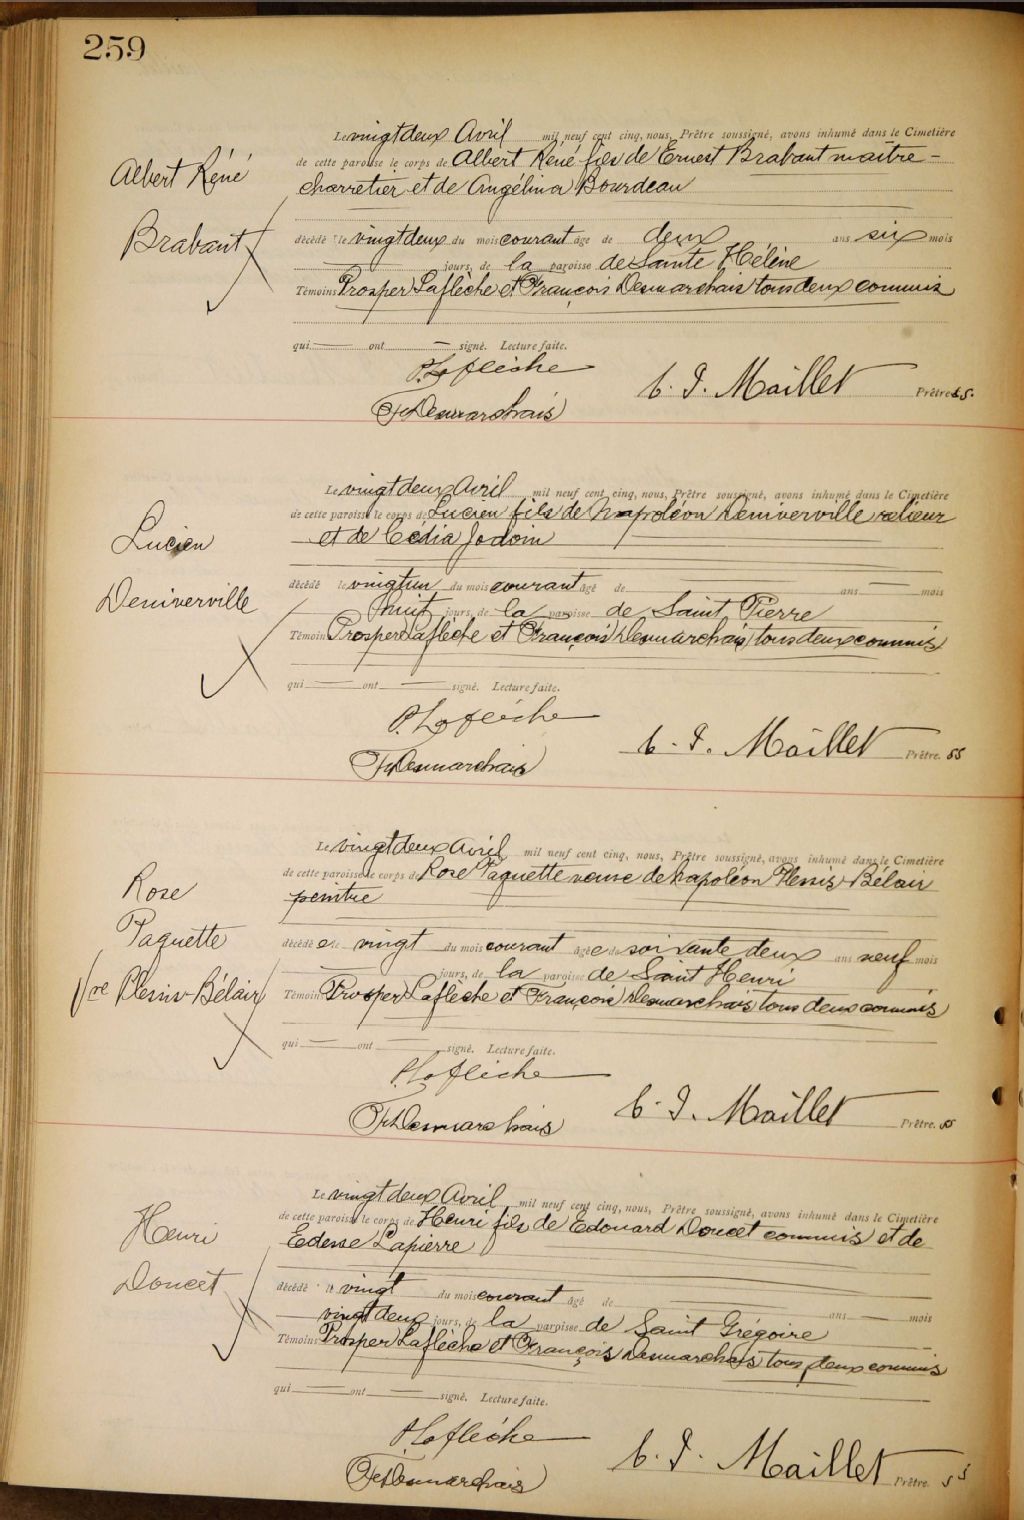 259
Le vingt deux Avril mil neuf cent cinq, nous, Prêtre soussigné, avons inhumé dans le Cimetière
de cette paroisse le corps de Albert Réné fils de Ernest Brabant maître-
charretier et de Angélina Bourdeau
Albert Réné
Brabant
décédé le vingt deux du mois courant âgé de deux ans six mois
jours, de la paroisse de Sainte Hélène
Témoins Prosper Laflèche et François Desmarchais tous deux commis
qui — ont — signé. Lecture faite.
P. Laflèche
C. J. Maillet Prêtre s.s.
F. Desmarchais
Le vingt deux Avril mil neuf cent cinq, nous, Prêtre soussigné, avons inhumé dans le Cimetière
de cette paroisse le corps de Lucien fils de Napoléon Deniverville relieur
et de Cédia Jodoin
Lucien
Deniverville
décédé le vingt un du mois courant âgé de — ans — mois
huit jours, de la paroisse de Saint Pierre
Témoins Prosper Laflèche et François Desmarchais tous deux commis
qui — ont — signé. Lecture faite.
P. Laflèche
C. J. Maillet Prêtre. ss
F. Desmarchais
Le vingt deux Avril mil neuf cent cinq, nous, Prêtre soussigné, avons inhumé dans le Cimetière
de cette paroisse le corps de Rose Paquette veuve de Napoléon Plessis-Bélair
peintre
Rose
Paquette
Vve Plessis-Bélair
décédée le vingt du mois courant âgée de soixante deux ans neuf mois
jours, de la paroisse de Saint Henri
Témoins Prosper Laflèche et François Desmarchais tous deux commis
qui — ont — signé. Lecture faite.
P. Laflèche
C. J. Maillet Prêtre. ss
F. Desmarchais
Le vingt deux Avril mil neuf cent cinq, nous, Prêtre soussigné, avons inhumé dans le Cimetière
de cette paroisse le corps de Henri fils de Edouard Doucet commis et de
Edesse Lapierre
Henri
Doucet
décédé le vingt du mois courant âgé de — ans — mois
vingt deux jours, de la paroisse de Saint Grégoire
Témoins Prosper Laflèche et François Desmarchais tous deux commis
qui — ont — signé. Lecture faite.
P. Laflèche
C. J. Maillet Prêtre. ss
F. Desmarchais